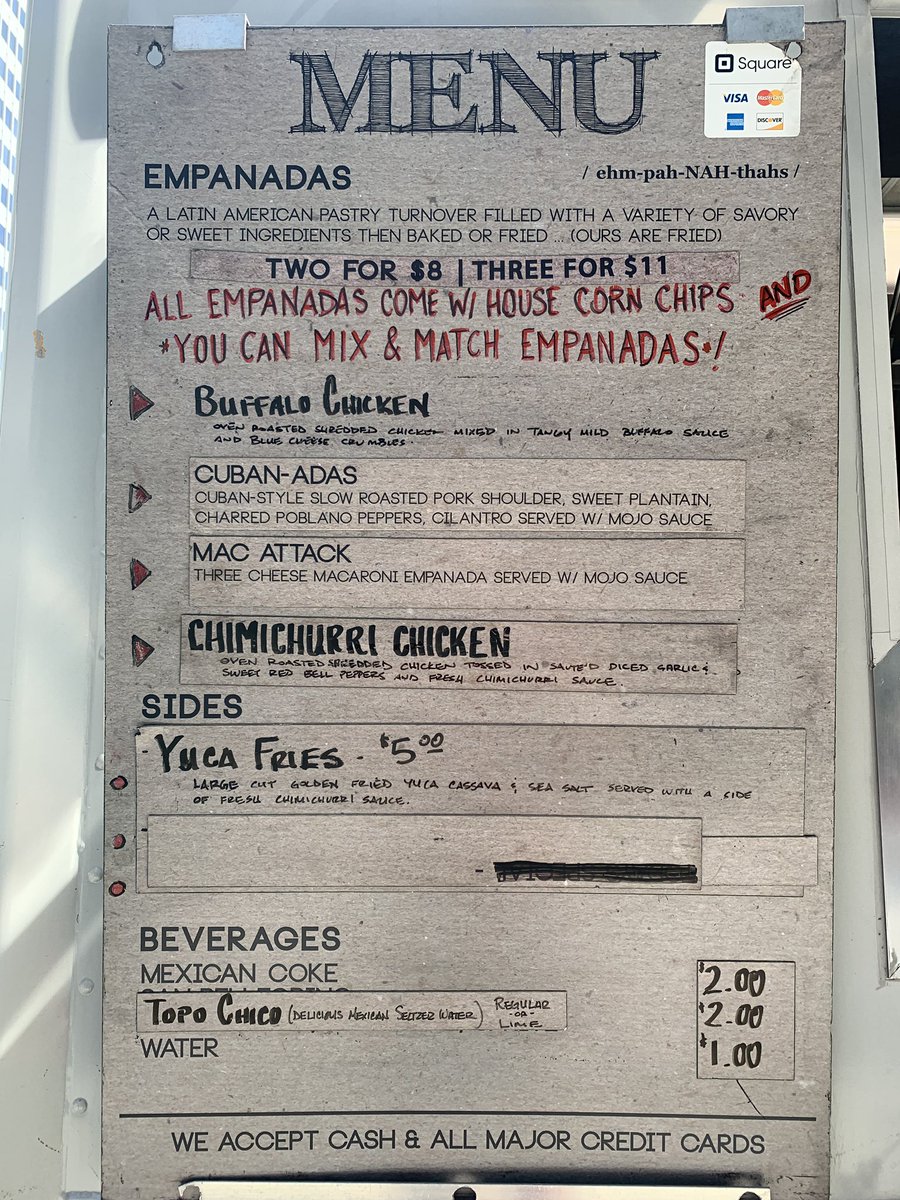 MENU
Square
VISA MasterCard
DISCOVER
EMPANADAS / ehm-pah-NAH-thahs /
A LATIN AMERICAN PASTRY TURNOVER FILLED WITH A VARIETY OF SAVORY
OR SWEET INGREDIENTS THEN BAKED OR FRIED ... (OURS ARE FRIED)
TWO FOR $8 | THREE FOR $11
ALL EMPANADAS COME W/ HOUSE CORN CHIPS AND
*YOU CAN MIX & MATCH EMPANADAS*!
BUFFALO CHICKEN
OVEN ROASTED SHREDDED CHICKEN MIXED IN TANGY MILD BUFFALO SAUCE
AND BLUE CHEESE CRUMBLES.
CUBAN-ADAS
CUBAN-STYLE SLOW ROASTED PORK SHOULDER, SWEET PLANTAIN,
CHARRED POBLANO PEPPERS, CILANTRO SERVED W/ MOJO SAUCE
MAC ATTACK
THREE CHEESE MACARONI EMPANADA SERVED W/ MOJO SAUCE
CHIMICHURRI CHICKEN
OVEN ROASTED SHREDDED CHICKEN TOSSED IN SAUTE'D DICED GARLIC &
SWEET RED BELL PEPPERS AND FRESH CHIMICHURRI SAUCE.
SIDES
YUCA FRIES - $5.00
LARGE CUT GOLDEN FRIED YUCA CASSAVA & SEA SALT SERVED WITH A SIDE
OF FRESH CHIMICHURRI SAUCE.
BEVERAGES
MEXICAN COKE $2.00
TOPO CHICO (DELICIOUS MEXICAN SELTZER WATER) REGULAR -OR- LIME $2.00
WATER $1.00
WE ACCEPT CASH & ALL MAJOR CREDIT CARDS